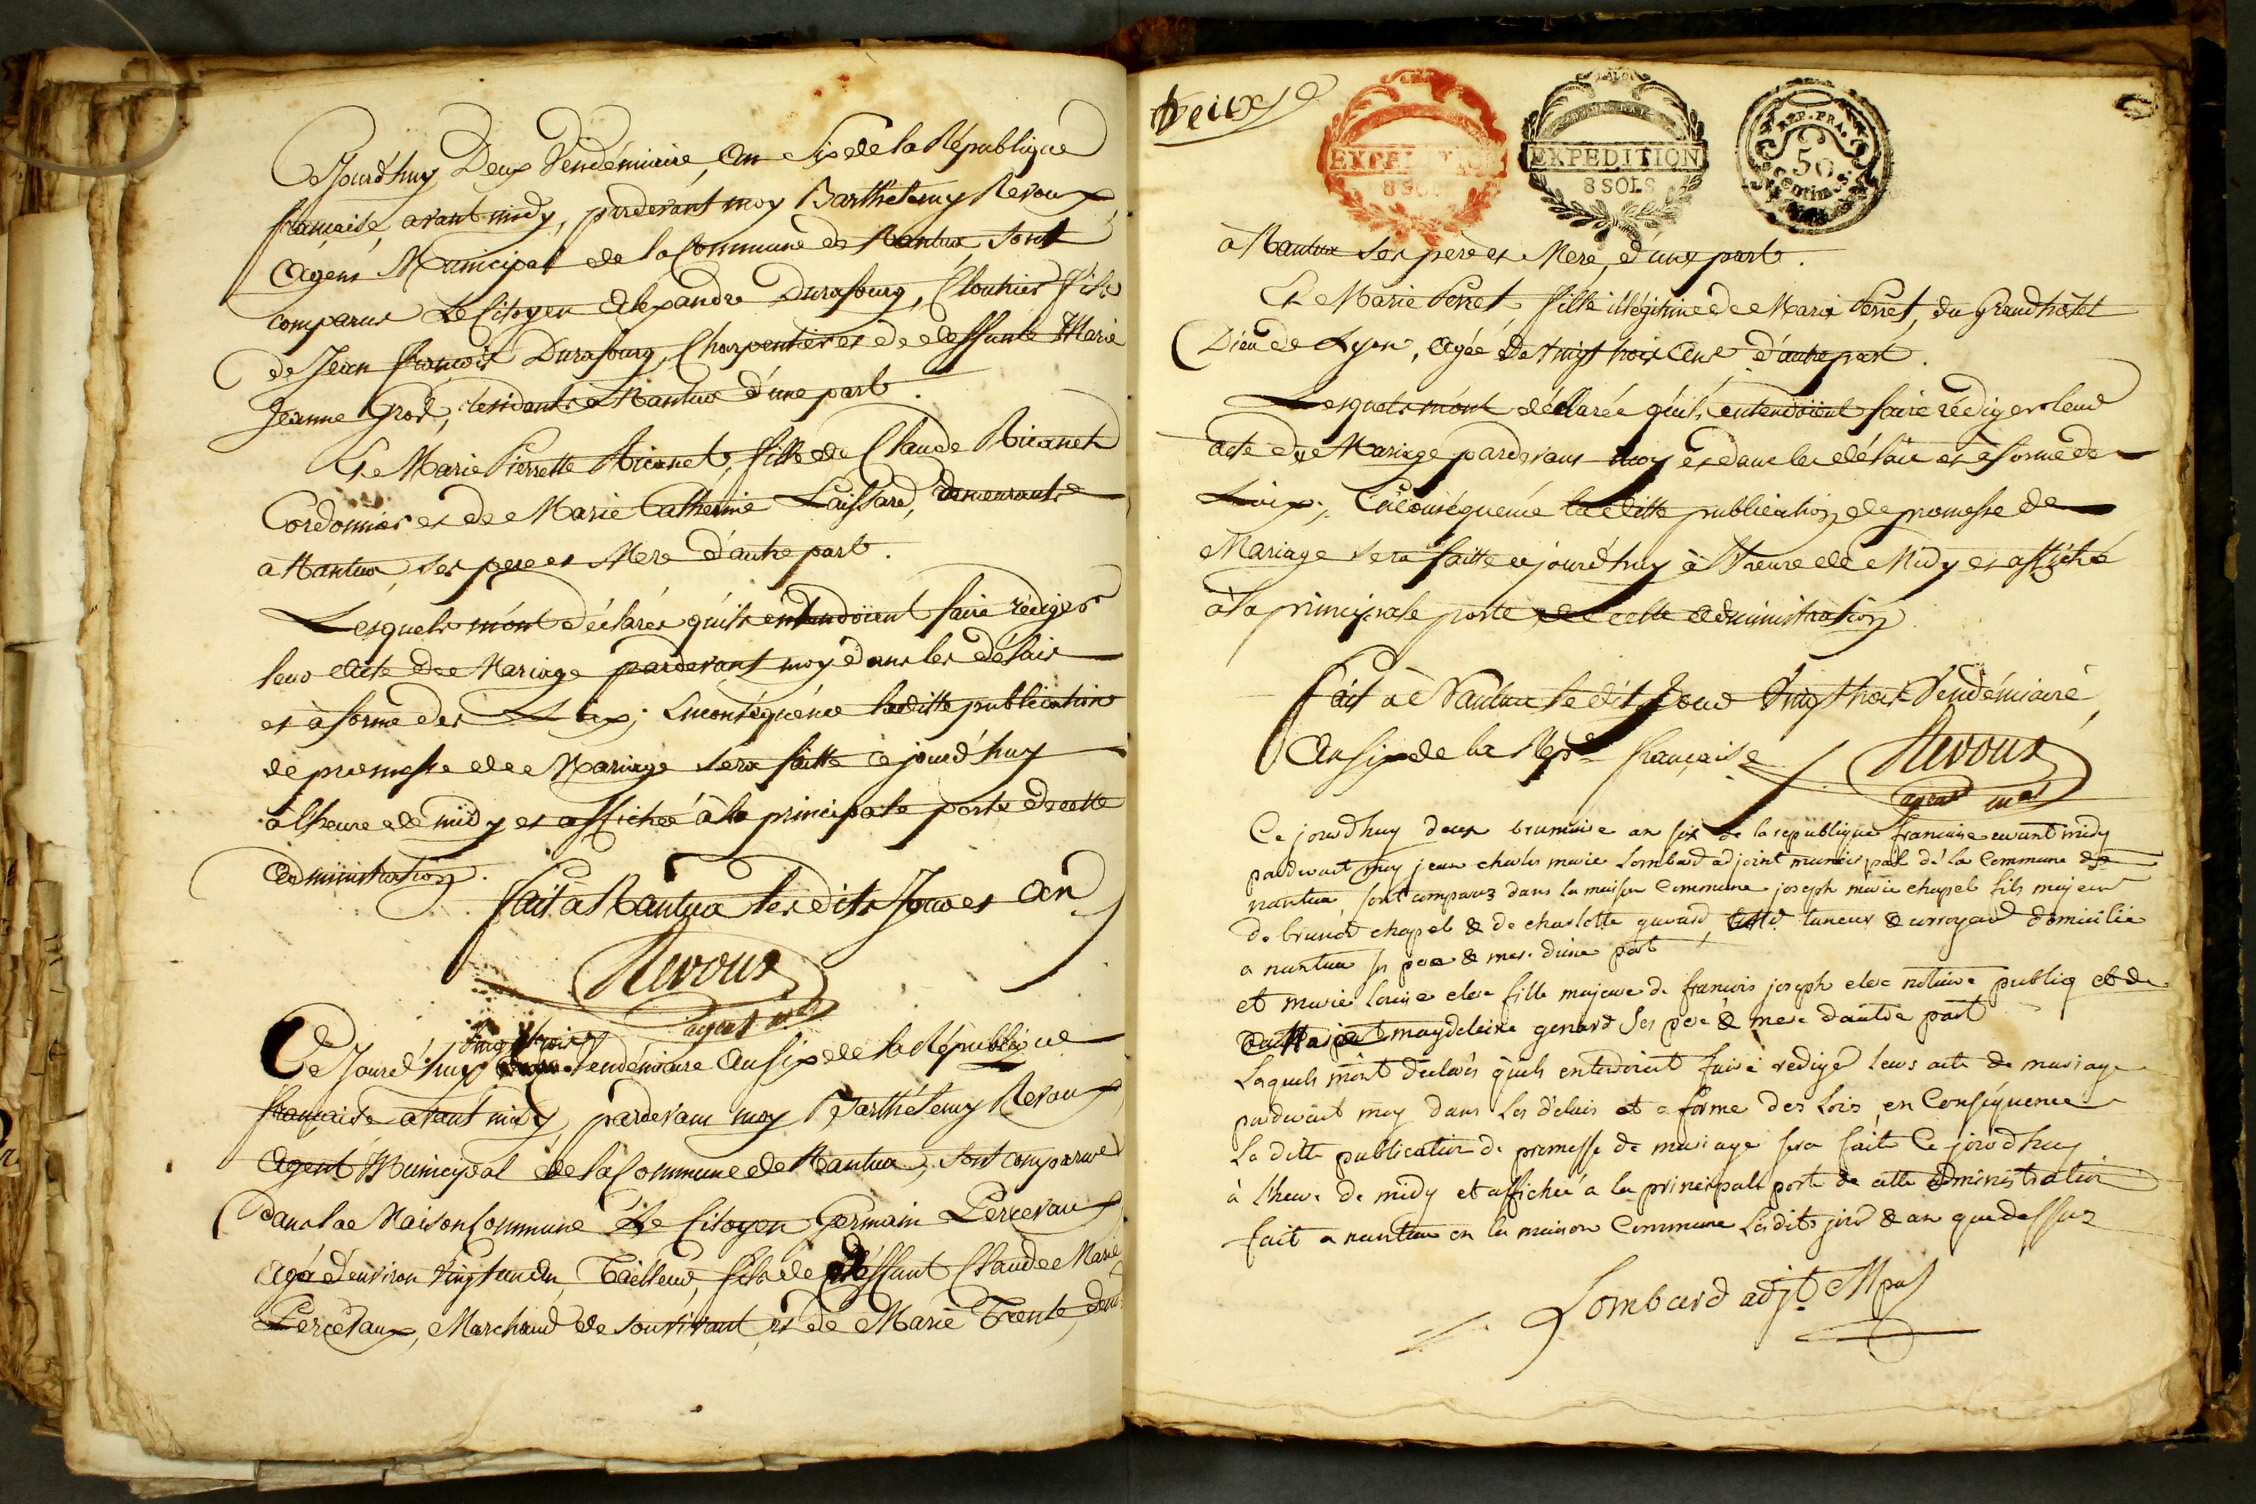 Ce Jourd'huy Deux Vendémiaire, An Six de la République
française, avant midy, pardevant moy Barthelemy Revoux
Agent Municipal de la Commune de Nantua, sont
comparus Le Citoyen Alexandre Durafourg, Cloutier fils
de Jean françois Durafourg, Charpentier et de deffunte Marie
Jeanne residants à Nantua d'une part.
Et Marie Pierrette Ricanet, fille de Claude Ricanet
Cordonnier et de Marie Catherine Laissard, demeurants
à Nantua, ses pere et Mere d'autre part.
Lesquels m'ont déclarés qu'ils entendoient faire rédiger
leur Acte de Mariage pardevant moy dans les délais
et à forme des Loix; Enconséquence laditte publication
de promesse de Mariage sera faitte ce jourd'huy
à l'heure de midy et affichée à la principale porte de cette
administration.
fait à Nantua les dits Jour et an
Revoux
agent mal
vingt trois
Ce Jourd'huy Vendémiaire an six de la République
française avant midy, pardevant moy Barthélemy Revoux
Agent Municipal de la Commune de Nantua, sont comparus
dans la Maison Commune Le Citoyen Germain Percevaux
agé d'environ vingt un an, Tailleur, fils de deffunt Claude Marie
Percevaux, Marchand de son vivant, et de Marie Trente,
Deux
EXPEDITION
8 SOLS
EXPEDITION
8 SOLS
REP. FRA.
50
centimes
à Nantua ses pere et Mere, d'une part.
Et Marie Perret fille illégitime de Marie Perret, du Grand hôtel
Dieu de Lyon, agée de vingt trois ans d'autre part.
Lesquels m'ont déclarée qu'ils entendoient faire rédiger leur
acte de Mariage pardevant moy et dans les délais et à forme de
Loix; Enconséquence laditte publication de promesse de
Mariage sera faitte ce jourd'huy à l'heure de Midy et affiché
à la principale porte de cette administration
fait à Nantua le dit Jour vingt trois Vendémiaire,
An six de la Rep. française
Revoux
agent mal
Ce jourdhuy deux brumaire an six de la republique francaise avant midy
pardevant moy jean charles marie Lombard adjoint municipal de la Commune de
nantua sont comparuz dans la maison Commune joseph marie chapel fils majeur
de brunot chapel & de charlotte taneur & corroyeur domicilié
a nantua ses pere & mere d'une part
et marie louise fille majeure de francois joseph notaire publiq et de
magdeleine genard ses pere & mere dautre part
Lesquels m'ont déclarés quils entendoient faire rediger leurs acte de mariage
pardevant moy dans les delais et a forme des Loix, en Conséquence
La ditte publication de promesse de mariage sera faite Ce jourdhuy
à lheure de midy et affichée a la principalle porte de cette administration
fait a nantua en la maison Commune lesdits jour & an que dessus
Lombard adjt. Mpal